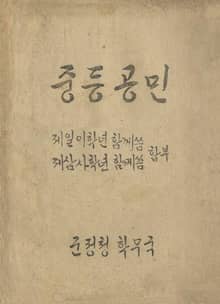 중등공민
제일이학년 함께씀
제삼사학년 함께씀 합부
군정청 학무국